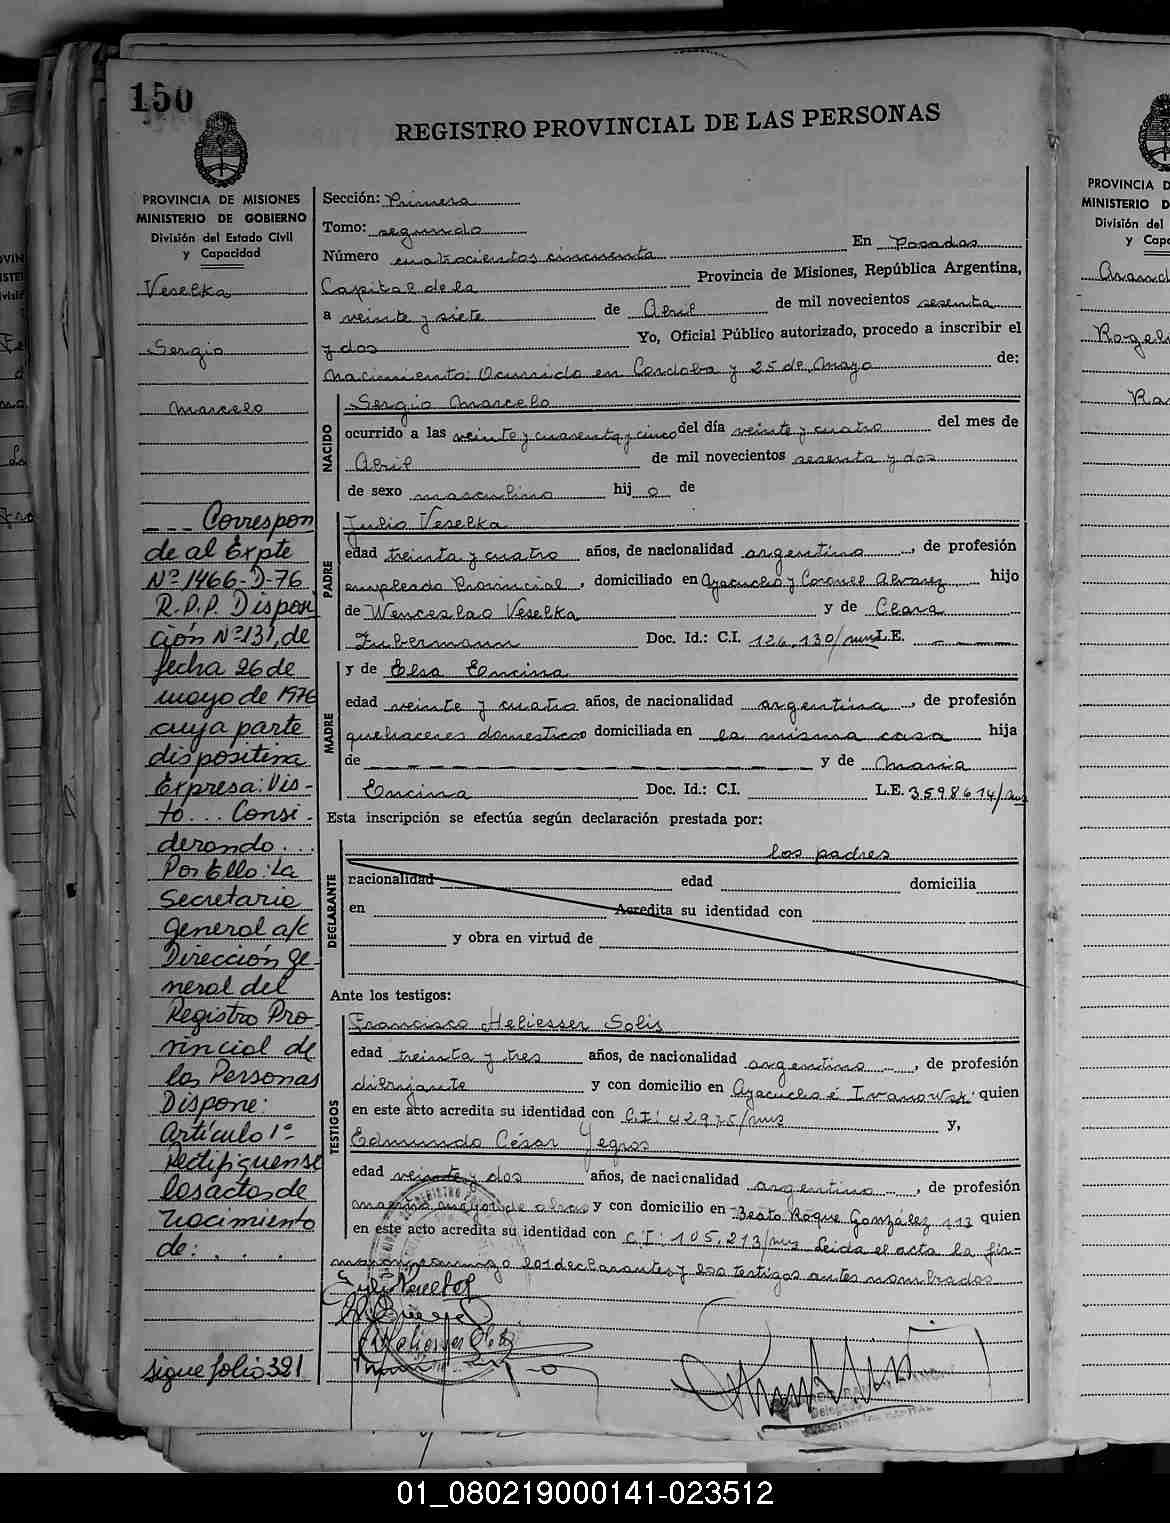 150
REGISTRO PROVINCIAL DE LAS PERSONAS
PROVINCIA DE MISIONES
MINISTERIO DE GOBIERNO
División del Estado Civil
y Capacidad
Veselka
Sergio
Marcelo
--- Correspon
de al Expte
Nº 1466-D-76
R.P.P. Disposi
ción Nº 131, de
fecha 26 de
mayo de 1976
cuya parte
dispositiva
Expresa: Vis-
to... Consi-
derando...
Por Ello: La
Secretaria
General a/c
Dirección Ge-
neral del
Registro Pro-
vincial de
las Personas
Dispone:
Artículo 1º
Rectifíquense
los actas de
Nacimiento
de: . . .
sigue folio 321
Sección: Primera
Tomo: segundo
Número cuatrocientos cincuenta En Posadas
Capital de la Provincia de Misiones, República Argentina,
a veinte y siete de Abril de mil novecientos sesenta
y dos Yo, Oficial Público autorizado, procedo a inscribir el
Nacimiento: Ocurrido en Cordoba y 25 de Mayo de:
NACIDO
Sergio Marcelo
ocurrido a las veinte y cuarenta y cinco del día veinte y cuatro del mes de
Abril de mil novecientos sesenta y dos
de sexo masculino hijo de
PADRE
Julio Veselka
edad treinta y cuatro años, de nacionalidad argentino, de profesión
empleado Provincial, domiciliado en Ayacucho y Coronel Alvarez hijo
de Wenceslao Veselka y de Clara
Zubermann Doc. Id.: C.I. 126.130/mns L.E. ----
MADRE
y de Elsa Encina
edad veinte y cuatro años, de nacionalidad argentina, de profesión
quehaceres domesticos domiciliada en la misma casa hija
de ---- y de Maria
Encina Doc. Id.: C.I. L.E. 3598614/mns
Esta inscripción se efectúa según declaración prestada por:
DECLARANTE
los padres
nacionalidad edad domicilia
en Acredita su identidad con
y obra en virtud de
Ante los testigos:
TESTIGOS
Francisco Heliesser Solis
edad treinta y tres años, de nacionalidad argentino, de profesión
dibujante y con domicilio en Ayacucho é Ivanowski quien
en este acto acredita su identidad con C.I: 42975/mns y,
Edmundo César Yegros
edad veinte y dos años, de nacionalidad argentino, de profesión
maestro mayor de obras y con domicilio en Beato Roque González 113 quien
en este acto acredita su identidad con C.I: 105.213/mns Leida el acta la fir-
man conmigo los declarantes y los testigos antes nombrados
01_080219000141-023512